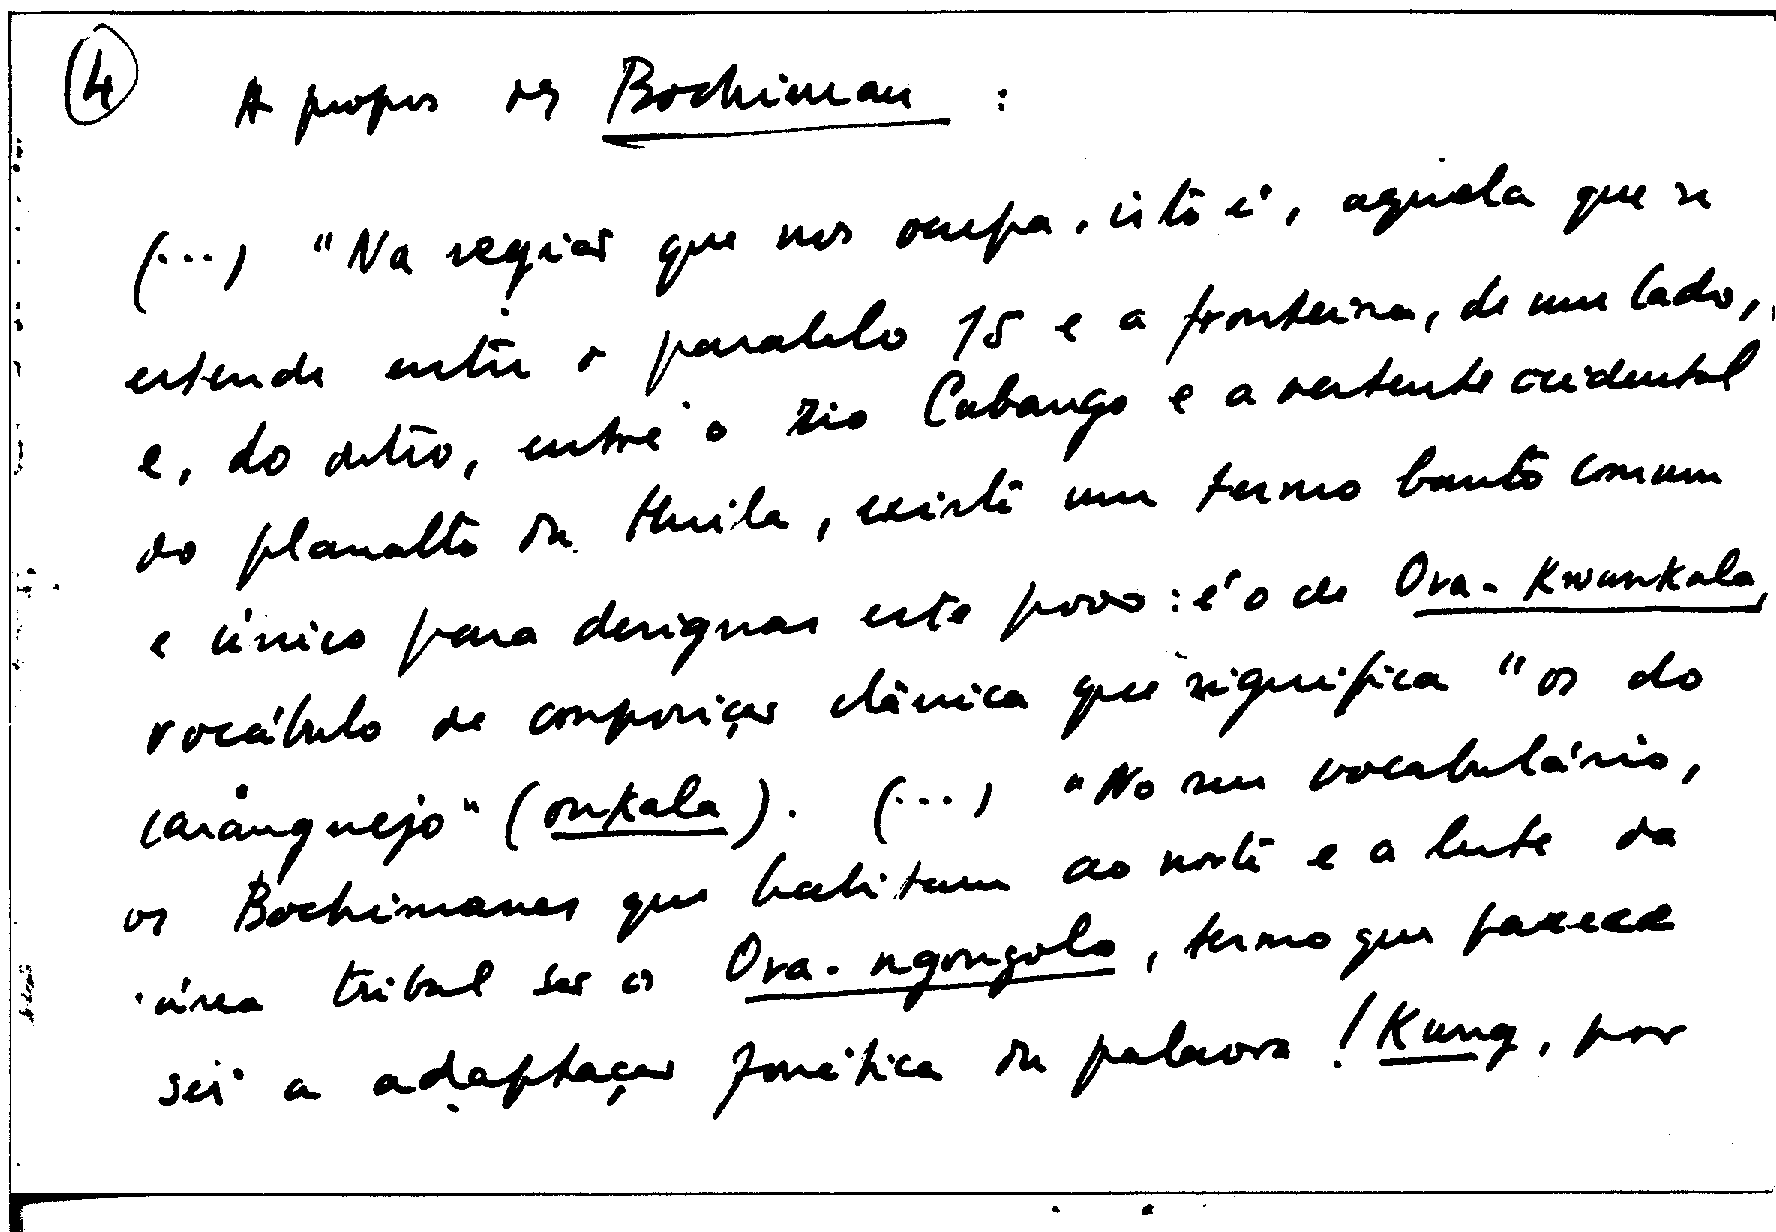 ④ A propos des Bochiman :
(...) "Na região que nos ocupa, isto é, aquela que se
estende entre o paralelo 15 e a fronteira, de um lado,
e, do outro, entre o rio Cubango e a vertente ocidental
do planalto da Huila, existe um termo banto comum
e único para designar este povo : é o de Ova-Kwankala,
vocábulo de composição clânica que significa "os do
caranguejo" (onkala). (...) "No seu vocabulário,
os Bochimanes que habitam ao norte e a leste da
área tribal são os Ova-ngongolo, termo que parece
ser a adaptação fonética da palavra !Kung, por